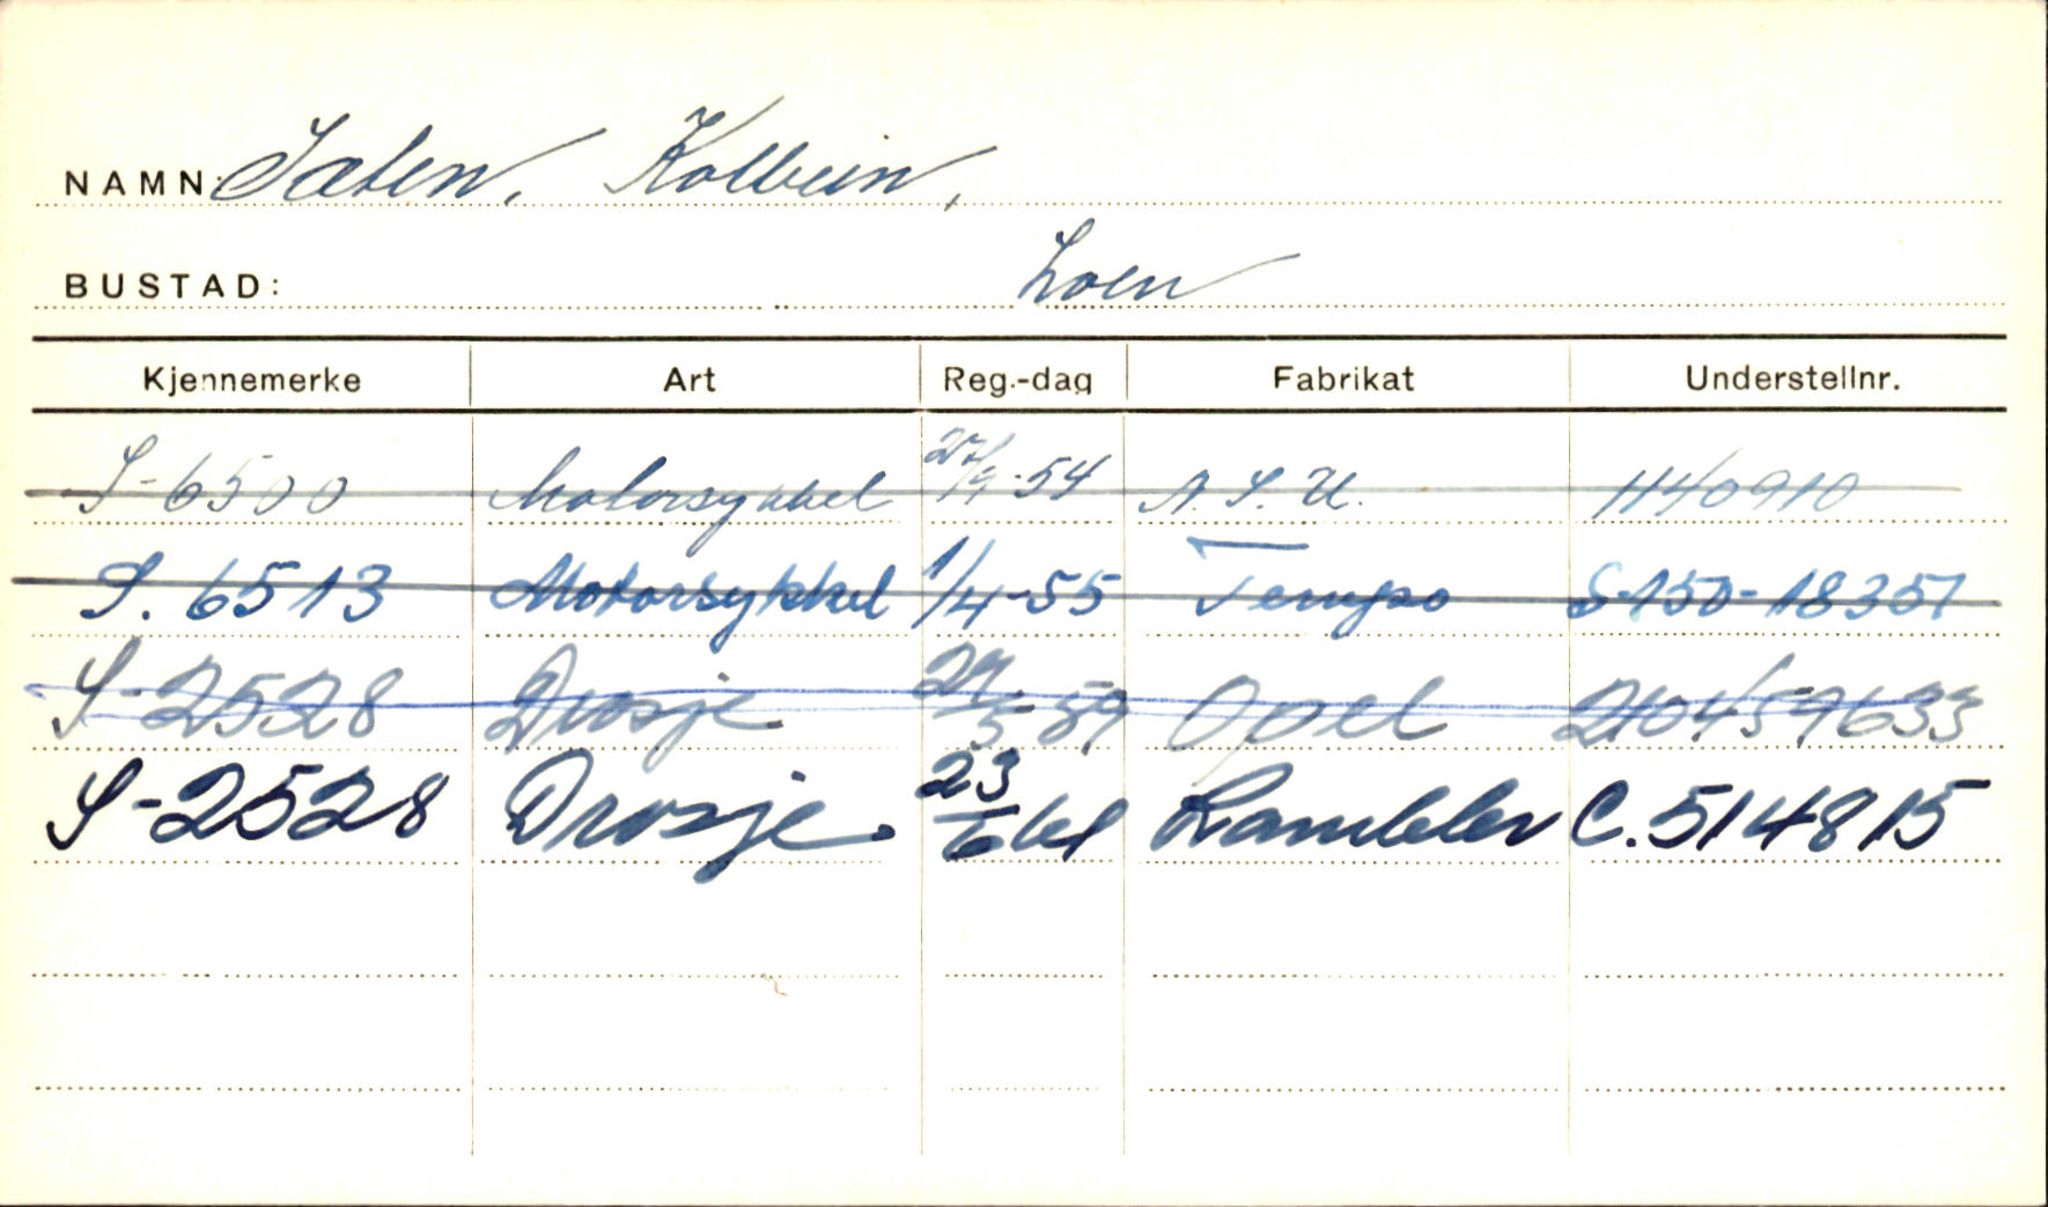 NAMN: Sæten, Kolbein,
BUSTAD: Loen
Kjennemerke Art Reg.-dag Fabrikat Understellnr.
S-6500 Motorsykkel 27/9-54 N.S.U. 1140910
S. 6513 Motorsykkel 1/4-55 Tempo S-150-18351
S-2528 Drosje 29/5 59 Opel 210459633
S-2528 Drosje. 23/6 61 Rambler C.514815